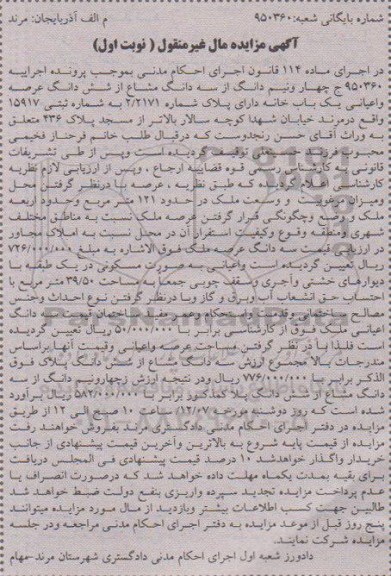 شماره بایگانی شعبه: ۹۵۰۳۶۰ م الف آذربایجان: مرند
آگهی مزایده مال غیرمنقول ( نوبت اول)
در اجرای ماده ۱۱۴ قانون اجرای احکام مدنی بموجب پرونده اجراییه
۹۵۰۳۶۰ ج چهار ونیم دانگ از سه دانگ مشاع از شش دانگ عرصه
واعیانی یک باب خانه دارای پلاک شماره ۲/۲۱۷۱ به شماره ثبتی ۱۵۹۱۷
واقع درمرند خیابان شهدا کوچه سالار بالاتر از مسجد پلاک ۴۳۶ متعلق
به وراث آقای حسن رنجدوست که درقبال طلب خانم فرحناز فخیمی
محبوب توقیف گردیده است وپس از طی تشریفات
قانونی به کارشناس رسمی قوه قضاییه ارجاع ، وپس از ارزیابی لازم نظریه
کارشناسی اعلام گردیده که طبق نظریه ، عرصه با درنظر گرفتن محل
ومیزان مرغوبیت و وسعت ملک در حدود ۱۲۱ متر مربع وحدود اربعه
ملک و وضع وچگونگی قرار گرفتن عرصه ملک نسبت به مناطق مختلف
شهری ومنطقه وقوع وکیفیت استقرار آن در محل نسبت به املاک مجاور
در ارزیابی قیمت سه دانگ عرصه ملک فوق الاشاره به مبلغ ۷۲۶/۰۰۰/۰۰۰
ریال تعیین گردیده است واعیانی به صورت مسکونی در یک طبقه با
دیوارهای خشتی وآجری وسقف چوبی جمعا به مساحت ۳۹/۵۰ متر مربع با
احتساب حق انشعاب آب وبرق و گاز وبا درنظر گرفتن نوع احداث وجنس
مصالح ساختمانی وقدمت واستحکام وعمر مفید ساختمان نوعیت سه دانگ
اعیانی ملک فوق از کارشناسی برابر با ۵۰/۰۰۰/۰۰۰ ریال تعیین گردیده
است فلذا با در نظر گرفتن مساحت عرصه واعیانی وقیمت آنها براساس
مندرجات بالا مجموع ارزش سه دانگ مشاع از شش دانگ پلاک فوق
الذکر برابر با ۷۷۶/۰۰۰/۰۰۰ ریال ودر نتیجه ارزش چهارونیم دانگ از سه
دانگ مشاع از شش دانگ پلاک مذکور برابر با ۵۸۲/۰۰۰/۰۰۰ ریال برآورد
شده است که روز دوشنبه مورخه ساعت ۱۰ صبح الی ۱۲ از طریق
مزایده در دفتر اجرای احکام مدنی دادگستری مرند به فروش خواهند رفت
مزایده از قیمت پایه شروع به بالاترین وآخرین قیمت پیشنهادی از جانب
خریدار واگذار خواهدشد ۱۰ درصد قیمت پیشنهادی فی المجلس دریافت
برای بقیه بمدت یکماه مهلت داده خواهد شد که درصورت انصراف یا
عدم پرداخت مزایده تجدید سپرده واریزی بنفع دولت ضبط خواهد شد
طالبین جهت کسب اطلاعات بیشتر وبازدید از مال مورد مزایده میتوانند
پنج روز قبل از موعد مزایده به دفتر اجرای احکام مدنی مراجعه ودر جلسه
مزایده شرکت نمایند.
دادورز شعبه اول اجرای احکام مدنی دادگستری شهرستان مرند-مهام